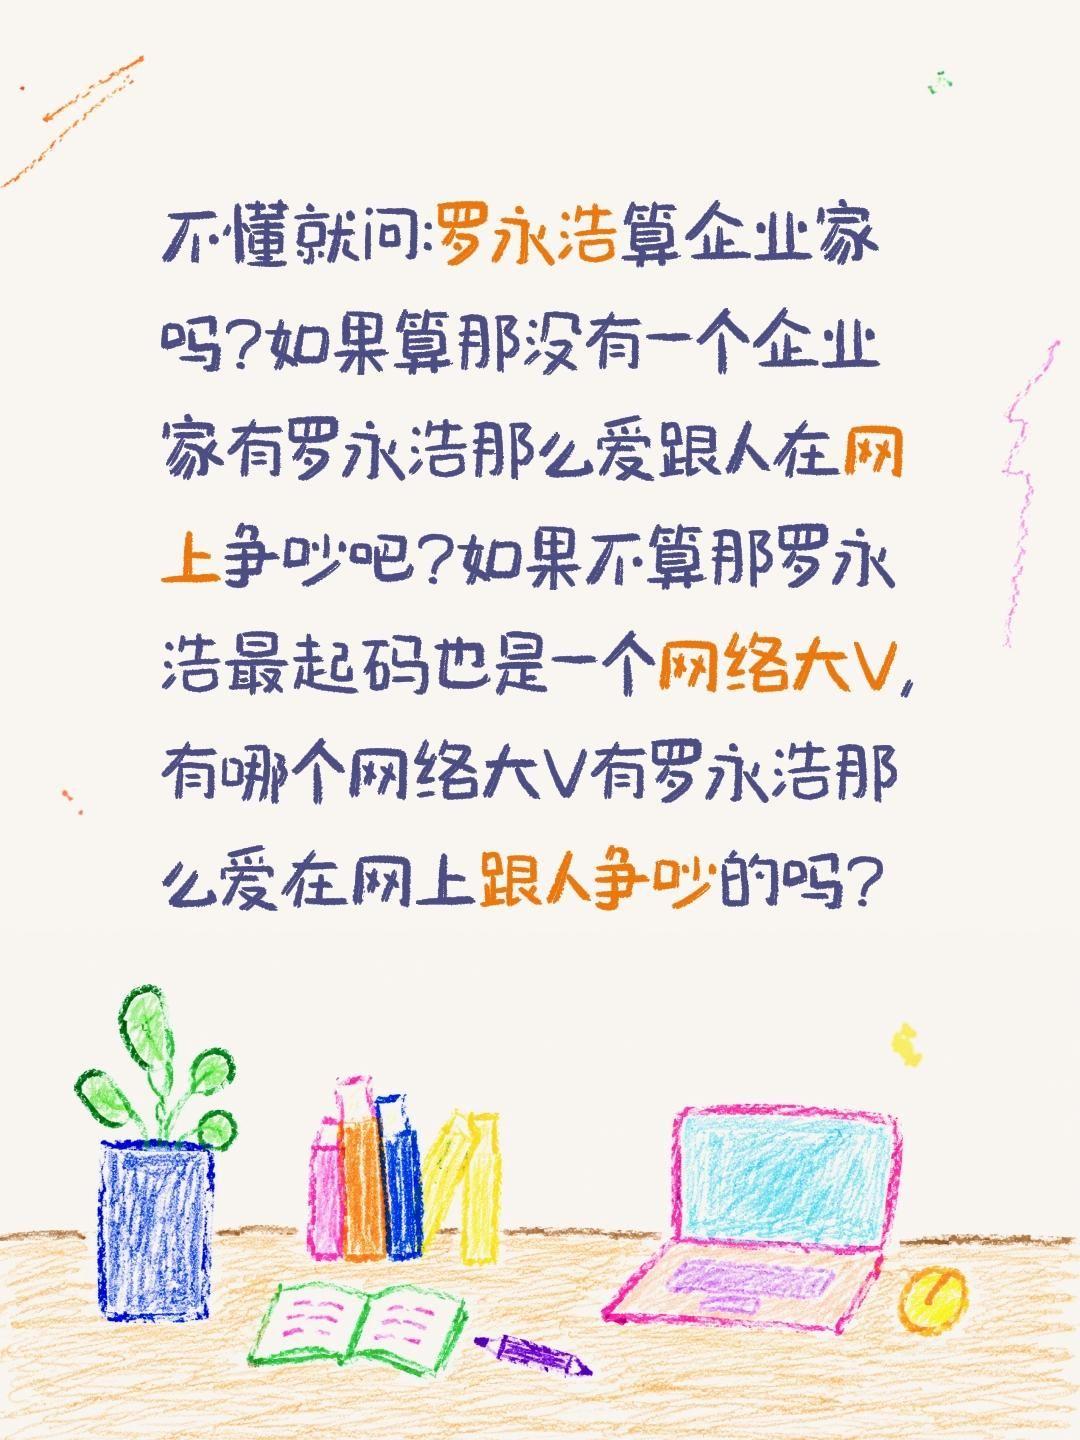 不懂就问:罗永浩算企业家
吗?如果算那没有一个企业
家有罗永浩那么爱跟人在网
上争吵吧?如果不算那罗永
浩最起码也是一个网络大V,
有哪个网络大V有罗永浩那
么爱在网上跟人争吵的吗?